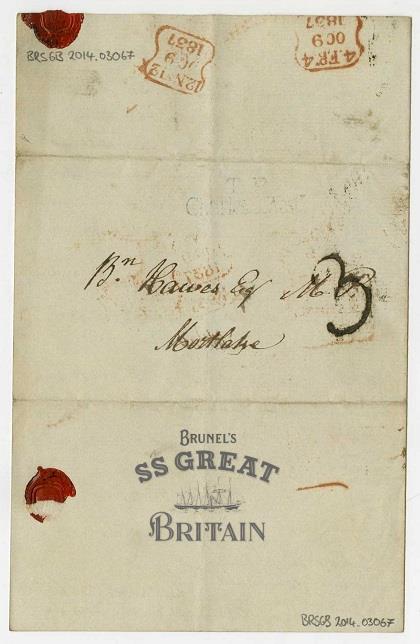 BRSGB 2014.03067
12.NN.12
OC 9
1837
4.FR.4
OC 9
1837
T.P
Bn. Hawes Esq M.P.
3
Mortlake
BRUNEL'S
SS GREAT
BRITAIN
BRSGB 2014.03067